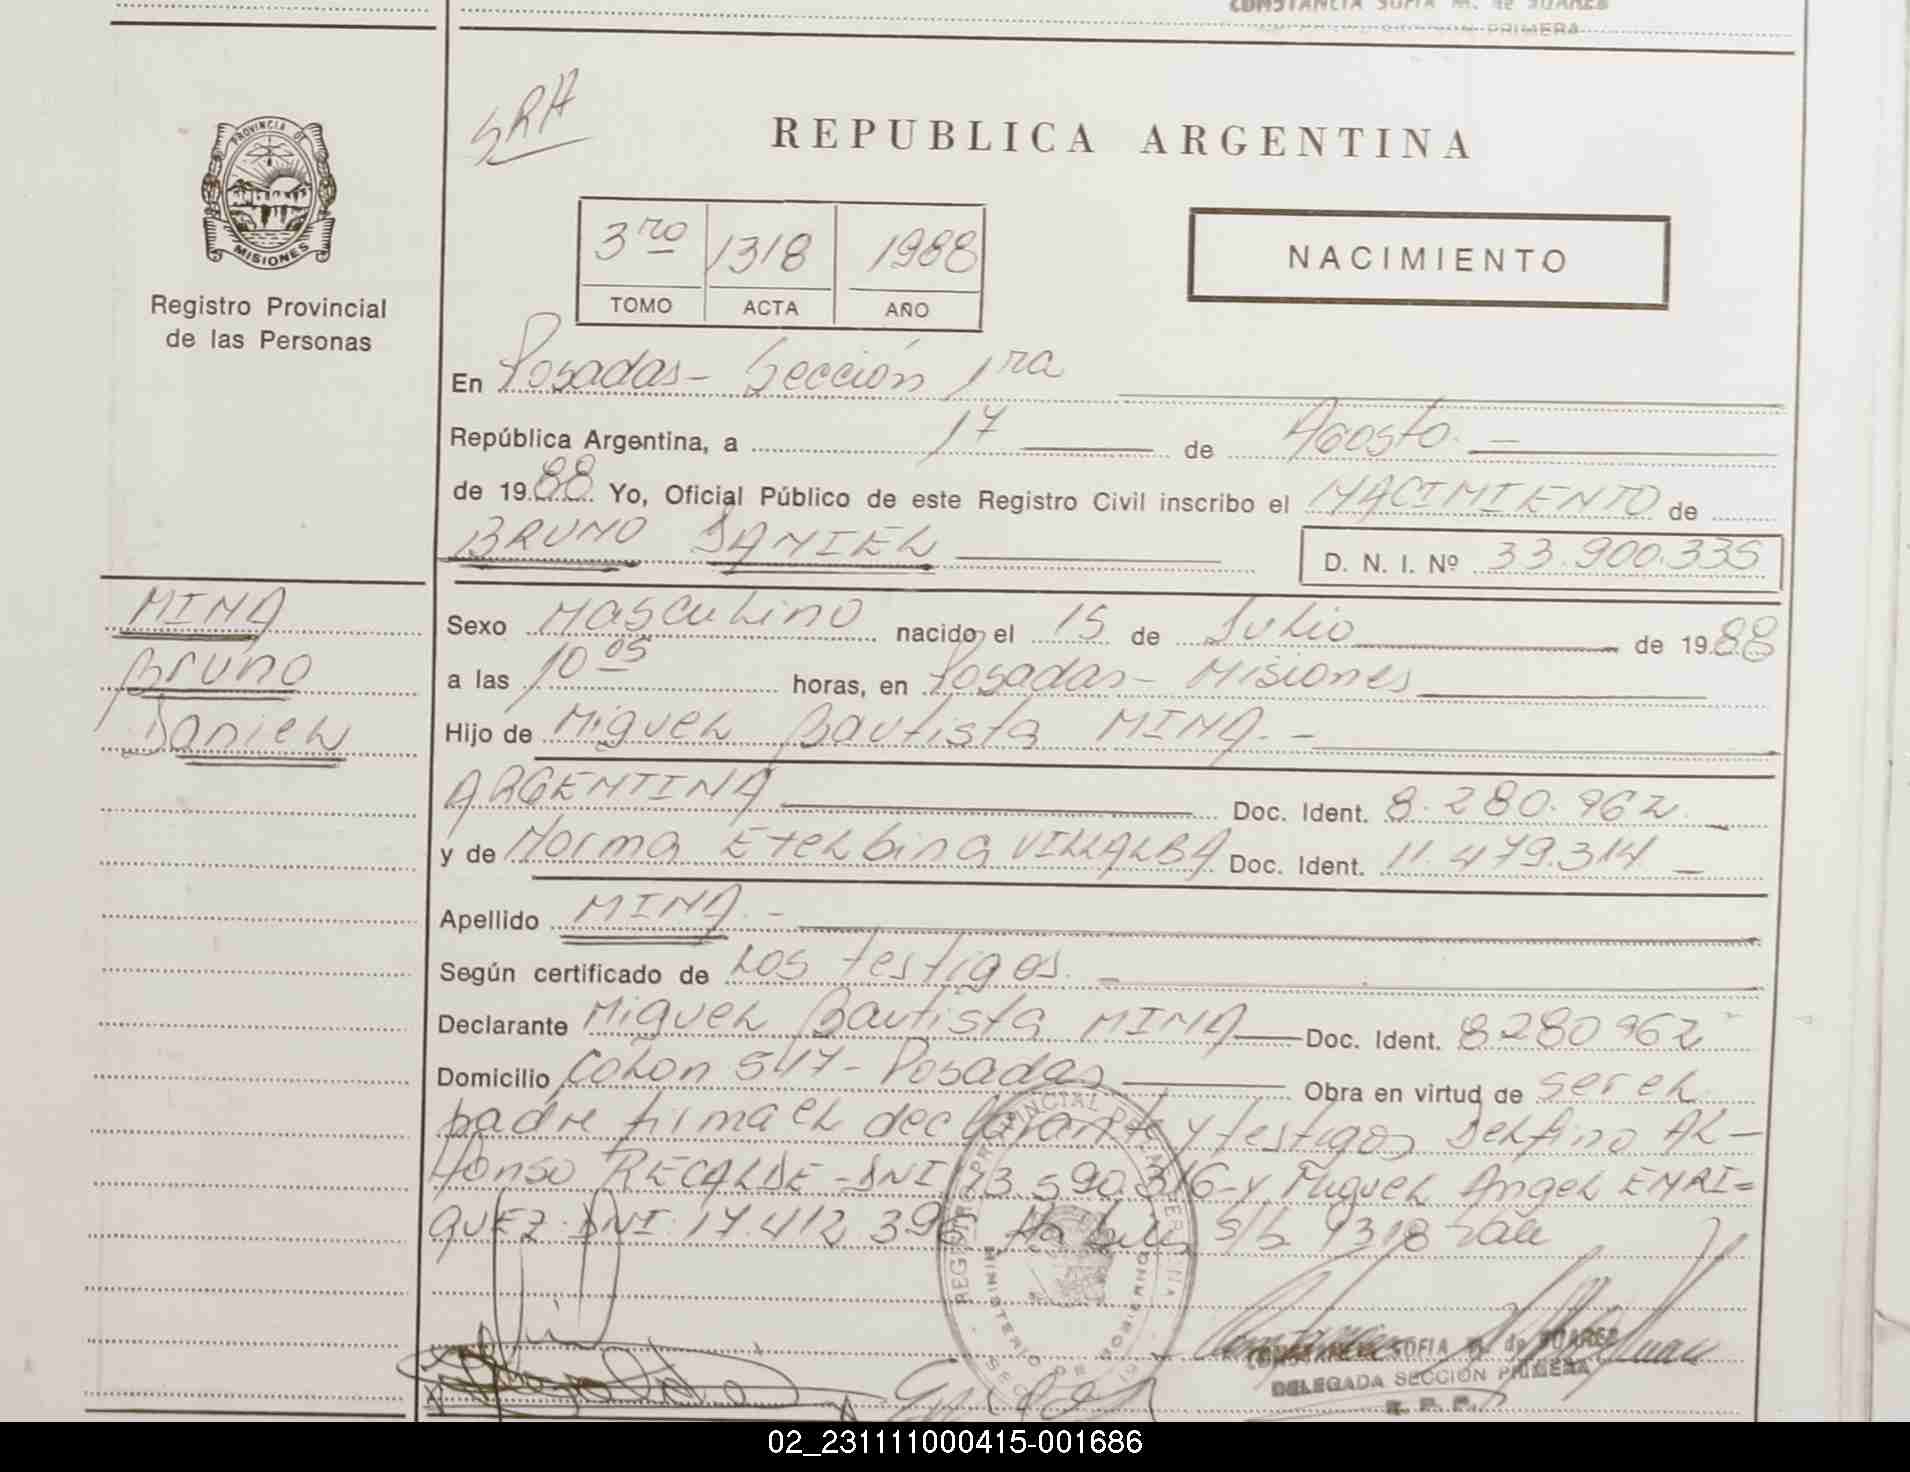 CONSTANCIA SOFIA M. de SUAREZ
PRIMERA
SRA
PROVINCIA DE
MISIONES
Registro Provincial
de las Personas
REPUBLICA ARGENTINA
3ro 1318 1988
TOMO ACTA AÑO
NACIMIENTO
En Posadas - Sección 1ra
República Argentina, a 17 de Agosto. -
de 1988 Yo, Oficial Público de este Registro Civil inscribo el NACIMIENTO de
BRUNO DANIEL
D. N. I. Nº 33.900.335
MINA
Bruno
Daniel
Sexo Masculino nacido el 15 de Julio de 1988
a las 10 05 horas, en Posadas - Misiones
Hijo de Miguel Bautista MINA. -
ARGENTINA Doc. Ident. 8.280.962 -
y de Norma Etelbina VILLALBA Doc. Ident. 11.479.314 -
Apellido MINA. -
Según certificado de Los testigos. -
Declarante Miguel Bautista MINA Doc. Ident. 8280962
Domicilio Colon 547 - Posadas Obra en virtud de ser el
padre firma el declarante y testigos Delfino AL-
fonso RECALDE - DNI 23.590.316 - y Miguel Angel ENRI=
QUEZ. DNI. 17.412.396 s/b 9318 Vale
CONSTANCIA SOFIA M. de SUAREZ
DELEGADA SECCIÓN PRIMERA
R. P. P.
02_231111000415-001686